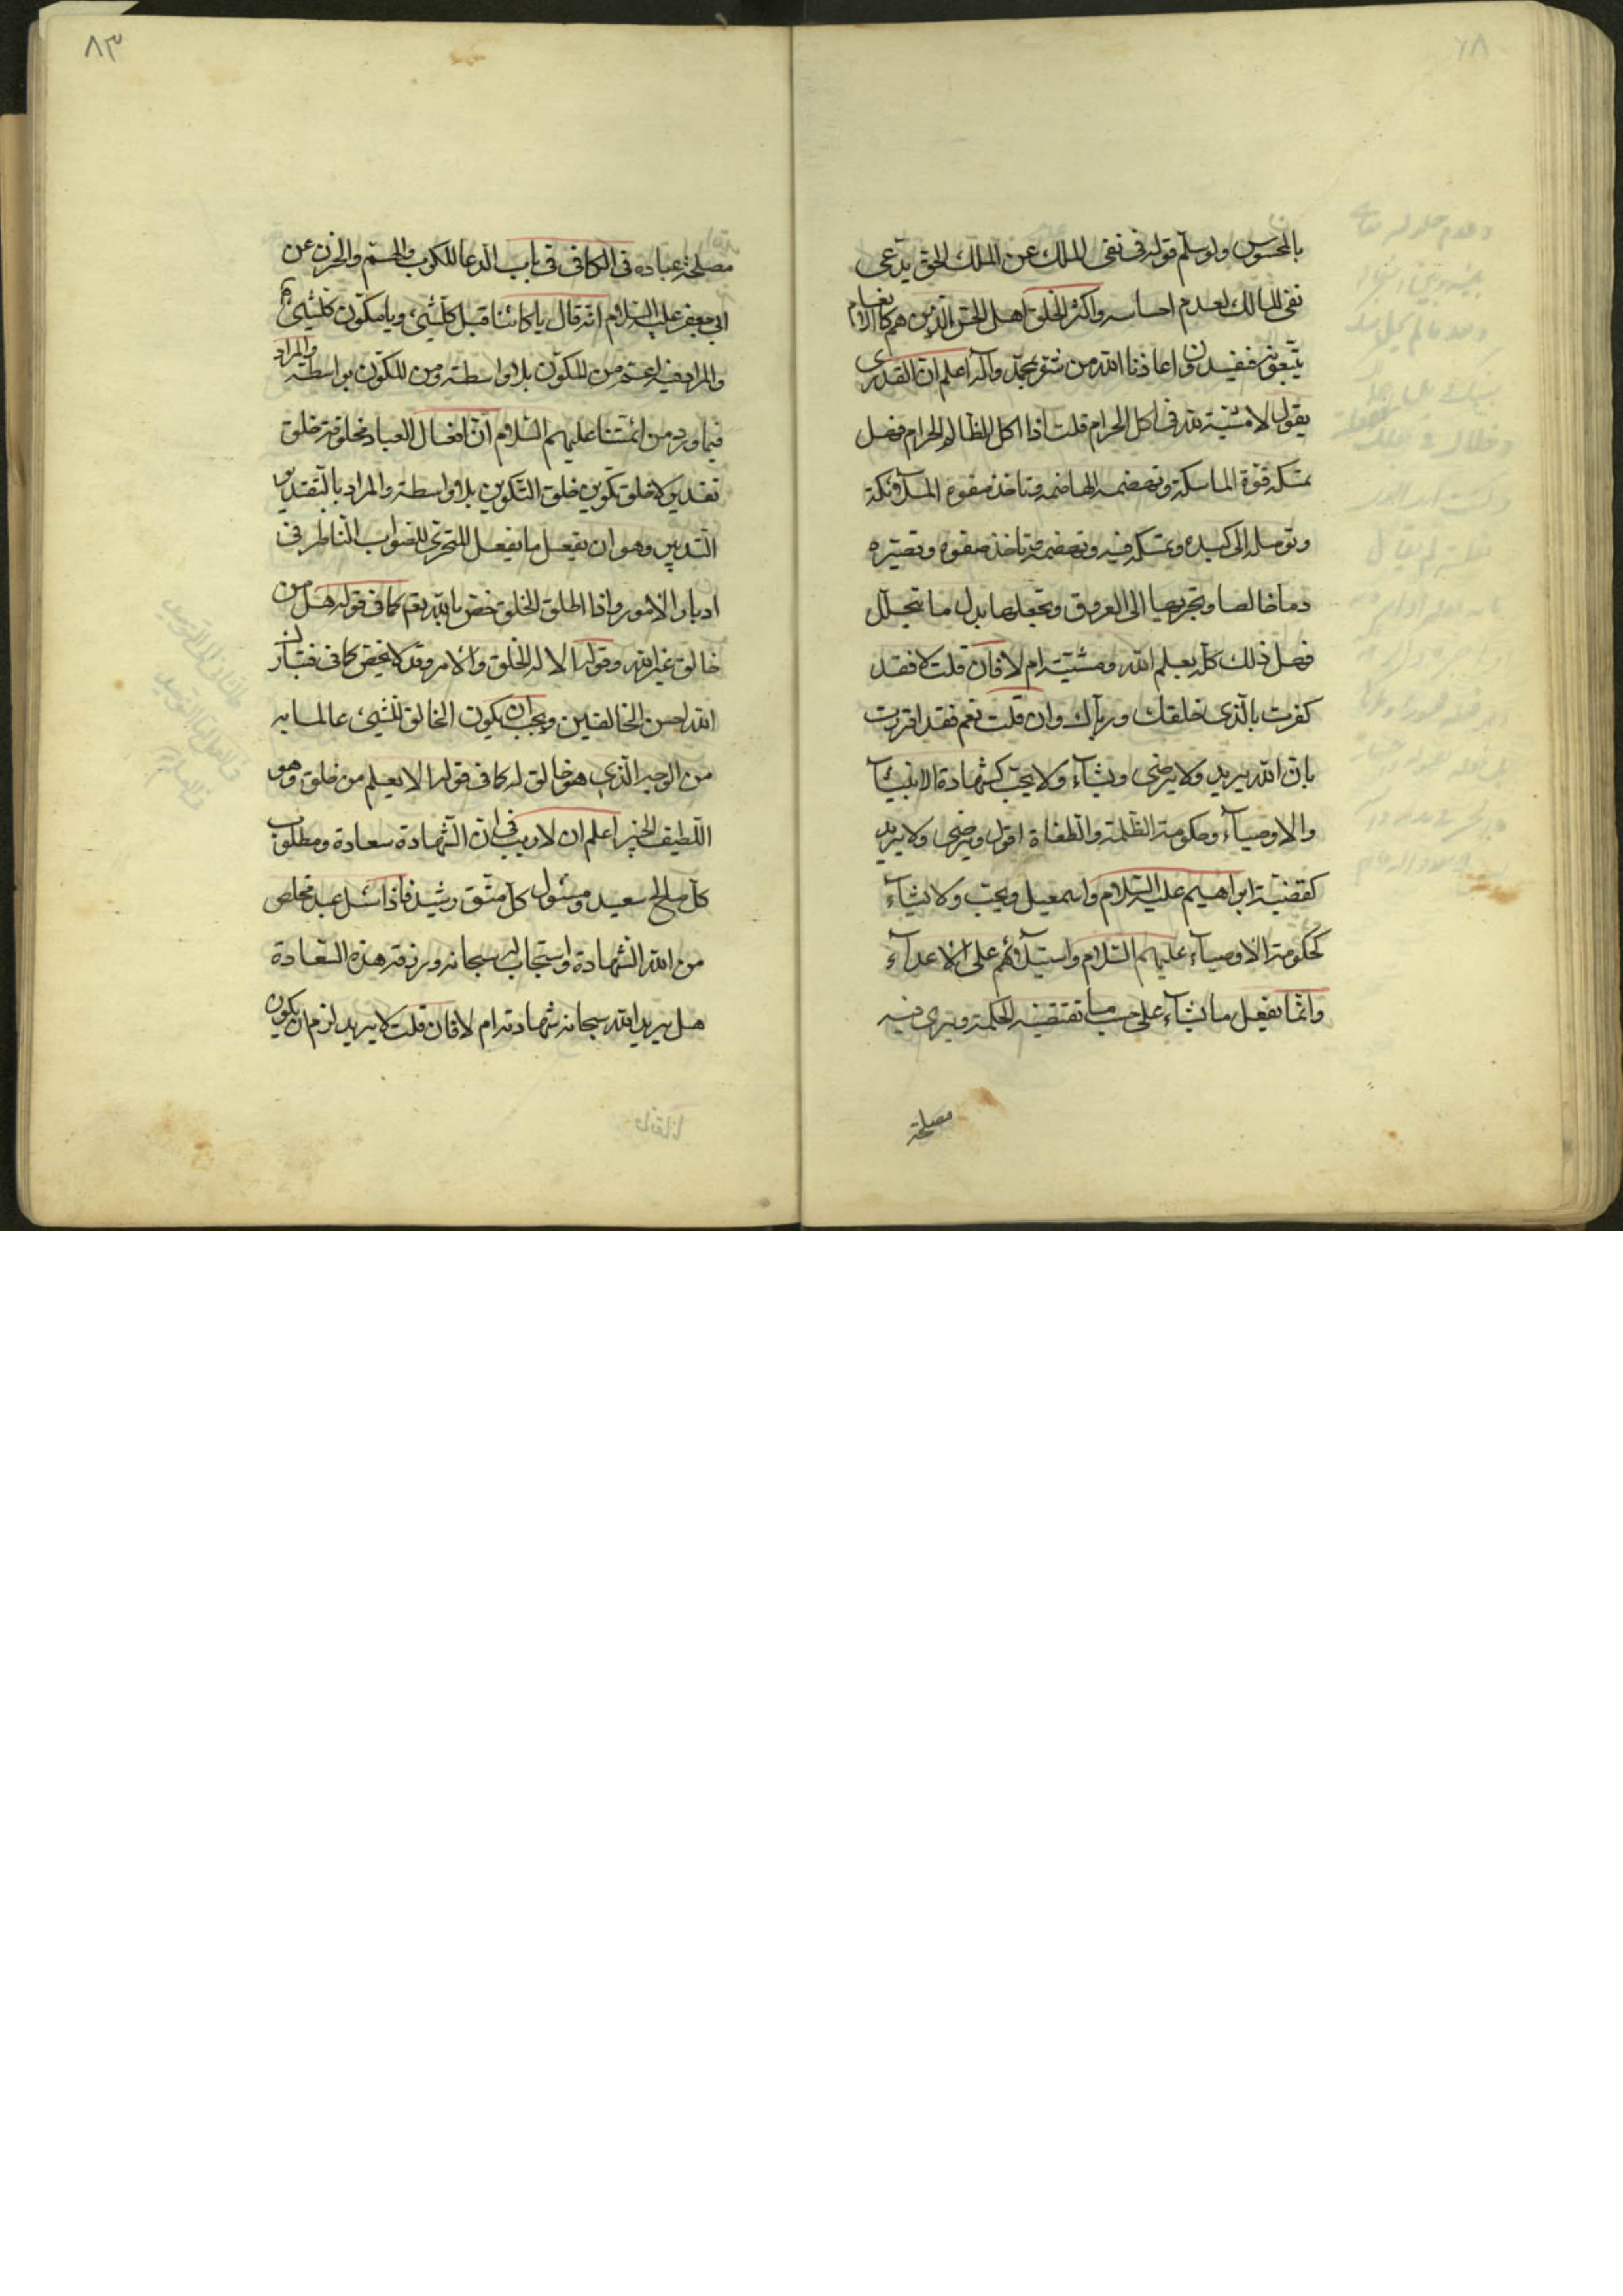 بالمحسوس ولو سلّم قوله فى نفى الملك عن الملك الحق يدّعى
نفى المالك لعدم احساسه واكثر الخلق اهل الحسّ الّذين هم كالانعام
يتّبعونه فيفسدون اعاذنا الله من شرّه بمحمّد وآله اعلم ان القدرى
يقول لا مشيّة لله فى اكل الحرام قلت اذا اكل الظالم الحرام فهل
تمسكه قوّة الماسكة وتهضمه الهاضمة وتاخذ صفوه الملائكة
وتوصله الى كبده وتمسكه فيه وتهضمه وتاخذ صفوه وتصيّره
دما خالصا وتجريها الى العروق وتجعلها بدل ما يتحلّل
فهل ذلك كلّه بعلم الله ومشيّته ام لا فان قلت لا فقد
كفرت بالّذى خلقك وربّاك وان قلت نعم فقد اقررت
بانّ الله يريد ولا يرضى ويشاء ولا يحبّ كشهادة الانبياء
والاوصياء وحكومة الظلمة والطغاة اقول ويرضى ولا يريد
كقضيّة ابراهيم عليه السّلام واسمعيل ويحبّ ولا يشاء
كحكومة الاوصياء عليهم السّلام واستيلائهم على الاعداء
وانّما يفعل ما يشاء على حسب ما تقتضيه الحكمة ويرى فيه
مصلحة
٨٣
مصلحة عباده فى الكافى فى باب الدعا للكرب والهمّ والحزن عن
ابى جعفر عليه السّلام انّه قال يا كائنا قبل كلّ شيئ ويا مكوّن كلّ شيئ
والمراد فيه اعمّ من المكوّن بلا واسطة ومن المكوّن بواسطة والمراد
فيما ورد من ائمّتنا عليهم السّلام انّ افعال العباد مخلوقة خلق
تقدير لا خلق تكوين خلق التكوين بلا واسطة والمراد بالتقدير
التدبير وهو ان يفعل ما يفعل المتحرّى للصواب الناظر فى
ادبار الامور واذا اطلق الخلق خصّ بالله تعم كما فى قوله هل من
خالق غير الله وقوله الا له الخلق والامر وقد لا يخصّ كما فى فتبارك
الله احسن الخالقين ويجب ان يكون الخالق للشيئ عالما به
من الوجه الّذى هو خالق له كما فى قوله الا يعلم من خلق وهو
اللّطيف الخبير اعلم ان لا ريب فى انّ الشهادة سعادة ومطلوب
كلّ صالح سعيد ومسئول كلّ متّق رشيد فاذا سئل عبد مخلص
من الله الشهادة واستجاب له سبحانه ورزقه هذه السّعادة
هل يريد الله سبحانه شهادته ام لا فان قلت لا يريد لزم ان يكون